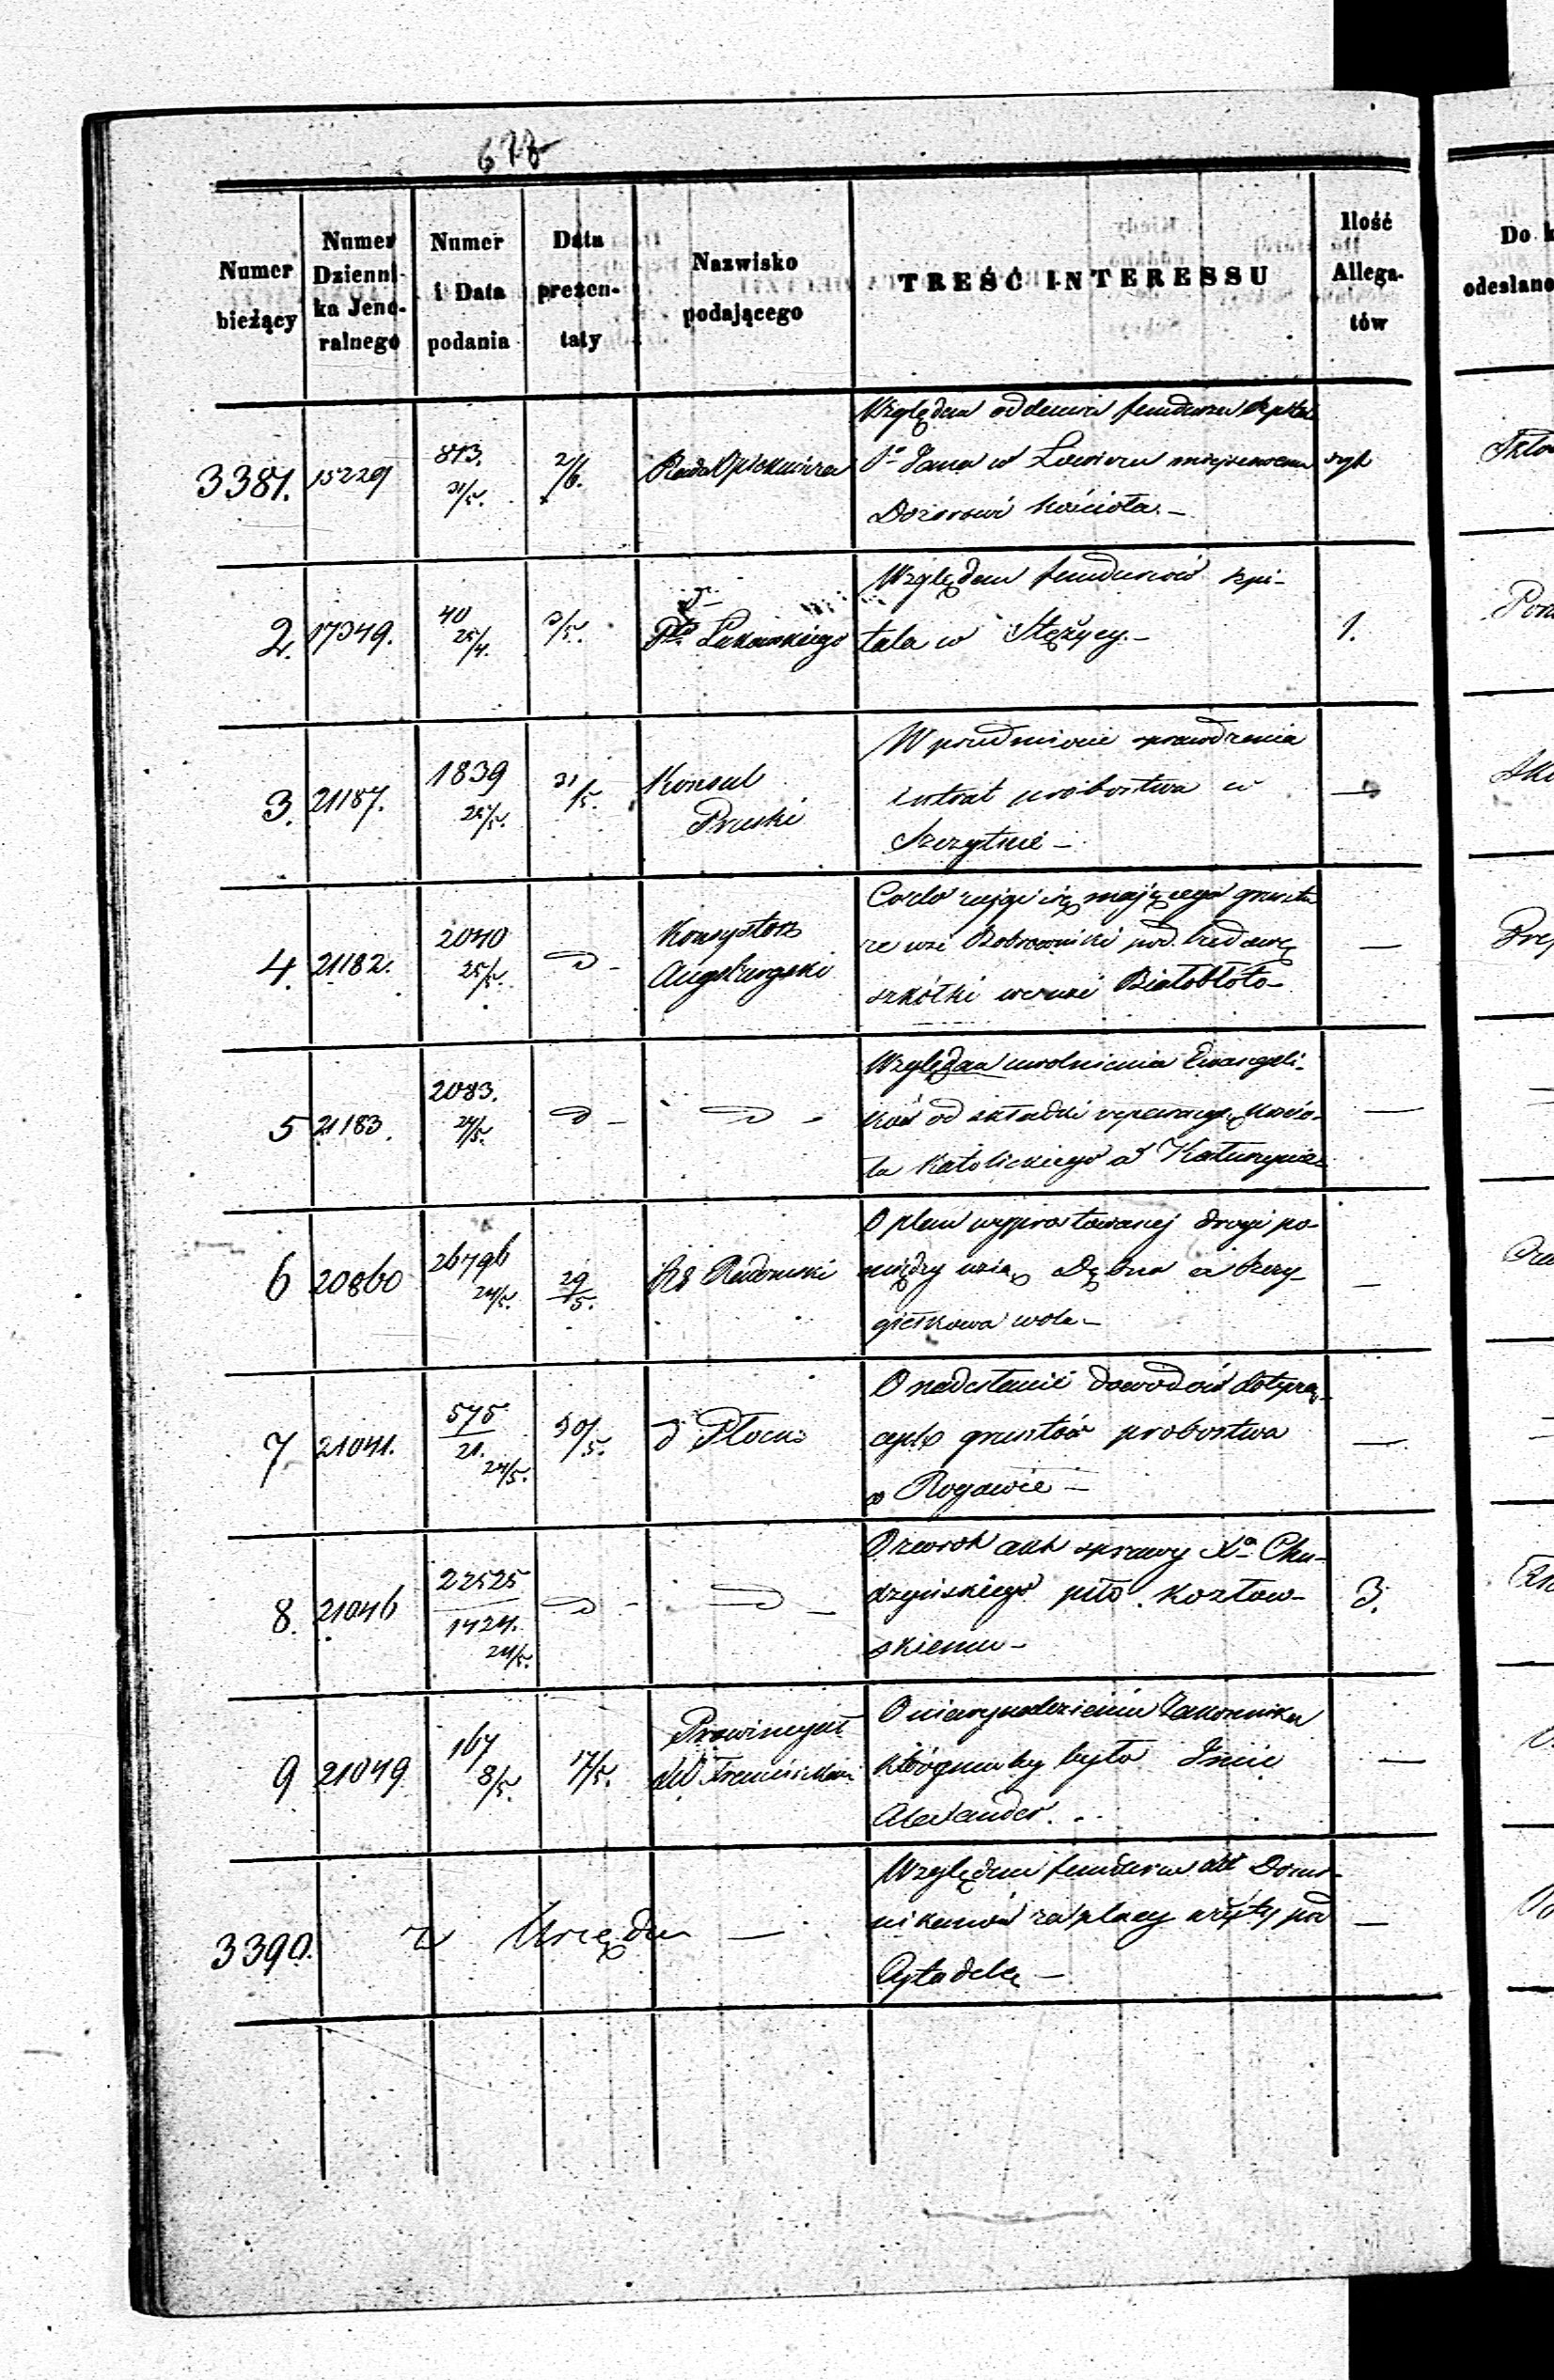 678
Numer bieżący
Numer Dzienni- ka Jene- ralnego
Numer i Data podania
Data prezen- taty
Nazwisko podającego
TREŚĆ INTERESSU
Ilość Allega- tów
Do k
odesłano
3381. 15229 813. 31/5. 2/6. Rada Opiekuńcza
Względem oddania funduszu Szpitala
Sgo Jana w Łowiczu miejscowemu
Dozorowi Kościoła.
2. 17349. 40 25/4. 2/5. Ptu Łukowskiego
Względem funduszów szpi-
tala w Stężycy. 1.
3. 21187. 1839 25/5. 31/5. Konsul
Pruski
W przedmiocie sprawdzenia
intrat probostwa w
Szczytnie —
4. 21182. 2040 25/5. Konsystorz
Augsburgski
Co do mającego gruntu
ze wsi Bobrowniki pod budowę
szkółki we wsi Białobłoto —
5 21183. 2083. 24/5.
Względem uwolnienia Ewangeli-
ków od składki reperacyę Kościo-
ła Katolickiego w —
6 20860 26796 24/5. 29/5. RG Radomski
O plan wyprostowanej drogi po-
między wsią Dębna a
wola —
7 21041. 575 21. 24/5. 30/5. d Płocki
O nadesłanie dowodów dotyczą-
cych gruntów probostwa
w Rogawie —
8. 21046 22525 1424. 24/5.
O zwrot akt sprawy Xa Chu-
dzyńskiego pko Kozłow-
skiemu — 3.
9 21049 167 8/5. 17/5. Prowincyał
XX Franciszkan
O Zakonnika
któregoby było Imie
Alexander.
3390. z Urzędu —
Względem funduszu XX Domi-
nikanów za placy wzięty pod
Cytadelę —